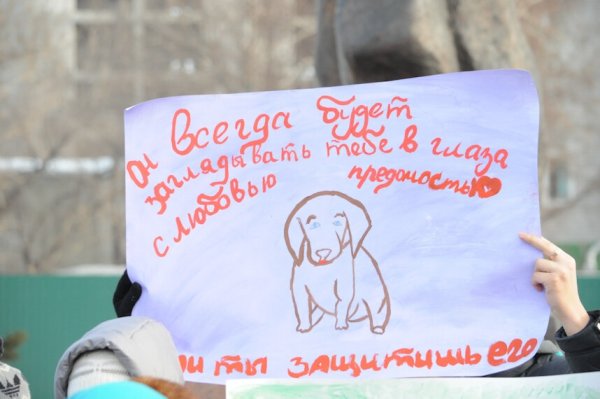 Он всегда будет
заглядывать тебе в глаза
с любовью предоностью
и ты защитишь его